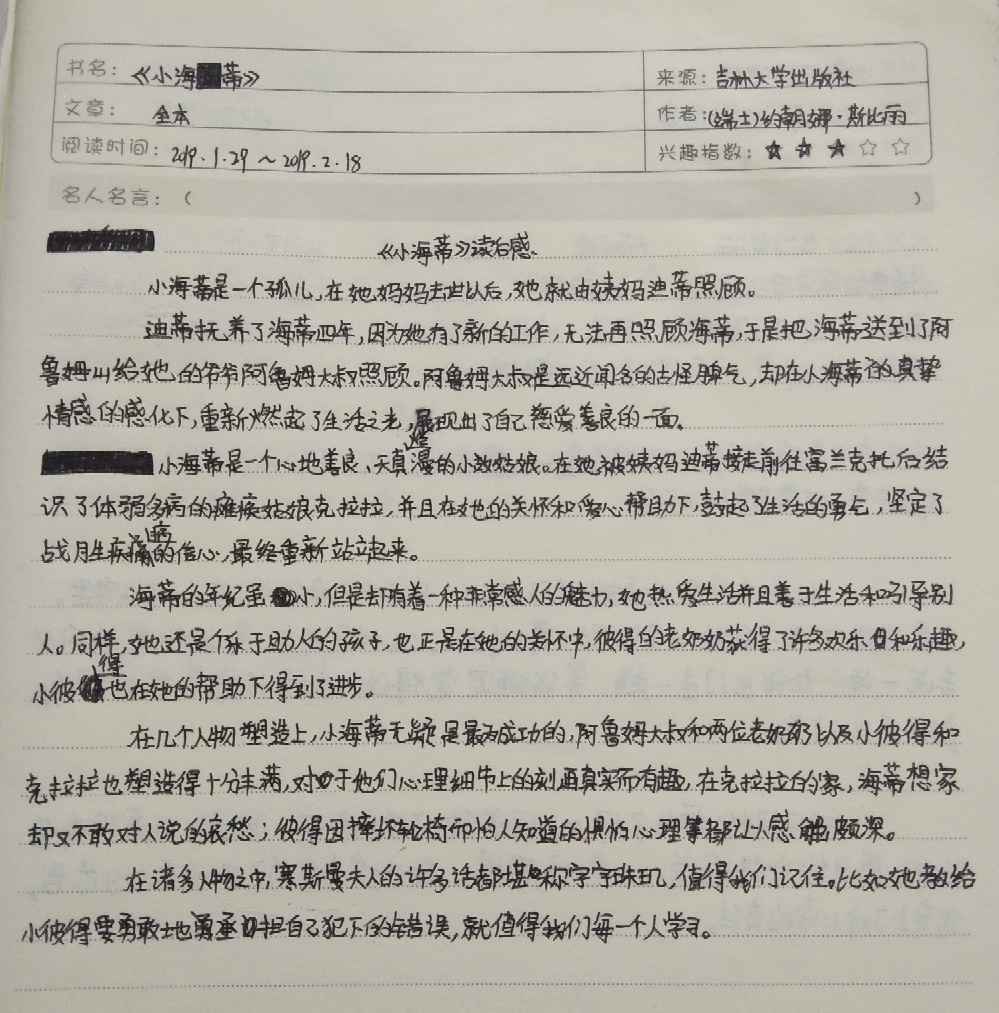 书名：《小海蒂》 来源：吉林大学出版社
文章：全本 作者：(瑞士)约朝娜·斯比丽
阅读时间：2019.1.29～2019.2.18 兴趣指数：★★★☆☆
名人名言：（ ）
《小海蒂》读后感
小海蒂是一个孤儿,在她妈妈去世以后,她就由姨妈迪蒂照顾。
迪蒂抚养了海蒂四年,因为她有了新的工作,无法再照顾海蒂,于是把海蒂送到了阿
鲁姆叫给她的爷爷阿鲁姆大叔照顾。阿鲁姆大叔是远近闻名的古怪脾气,却在小海蒂的真挚
情感的感化下,重新燃起了生活之光,展现出了自己慈爱善良的一面。
小海蒂是一个心地善良、天真烂漫的小姑娘。在她被姨妈迪蒂接走前往富兰克托后结
识了体弱多病的瘫痪姑娘克拉拉,并且在她的关怀和爱心帮助下,鼓起了生活的勇气,坚定了
战胜疾病的信心,最终重新站立起来。
海蒂的年纪虽小,但是却有着一种非常感人的魅力,她热爱生活并且善于生活和引导别
人。同样,她还是个乐于助人的孩子,也正是在她的关怀中,彼得的老奶奶获得了许多欢乐和乐趣,
小彼得也在她的帮助下得到了进步。
在几个人物塑造上,小海蒂无疑是最为成功的,阿鲁姆大叔和两位老奶奶以及小彼得和
克拉拉也塑造得十分丰满,对于他们心理细节上的刻画真实而有趣,在克拉拉的家,海蒂想家
却又不敢对人说的哀愁；彼得因摔坏轮椅而怕人知道的惧怕心理等都让人感触颇深。
在诸多人物之中,塞斯曼夫人的许多话都堪称字字珠玑,值得我们记住。比如她教给
小彼得要勇敢地勇承担自己犯下的错误,就值得我们每一个人学习。